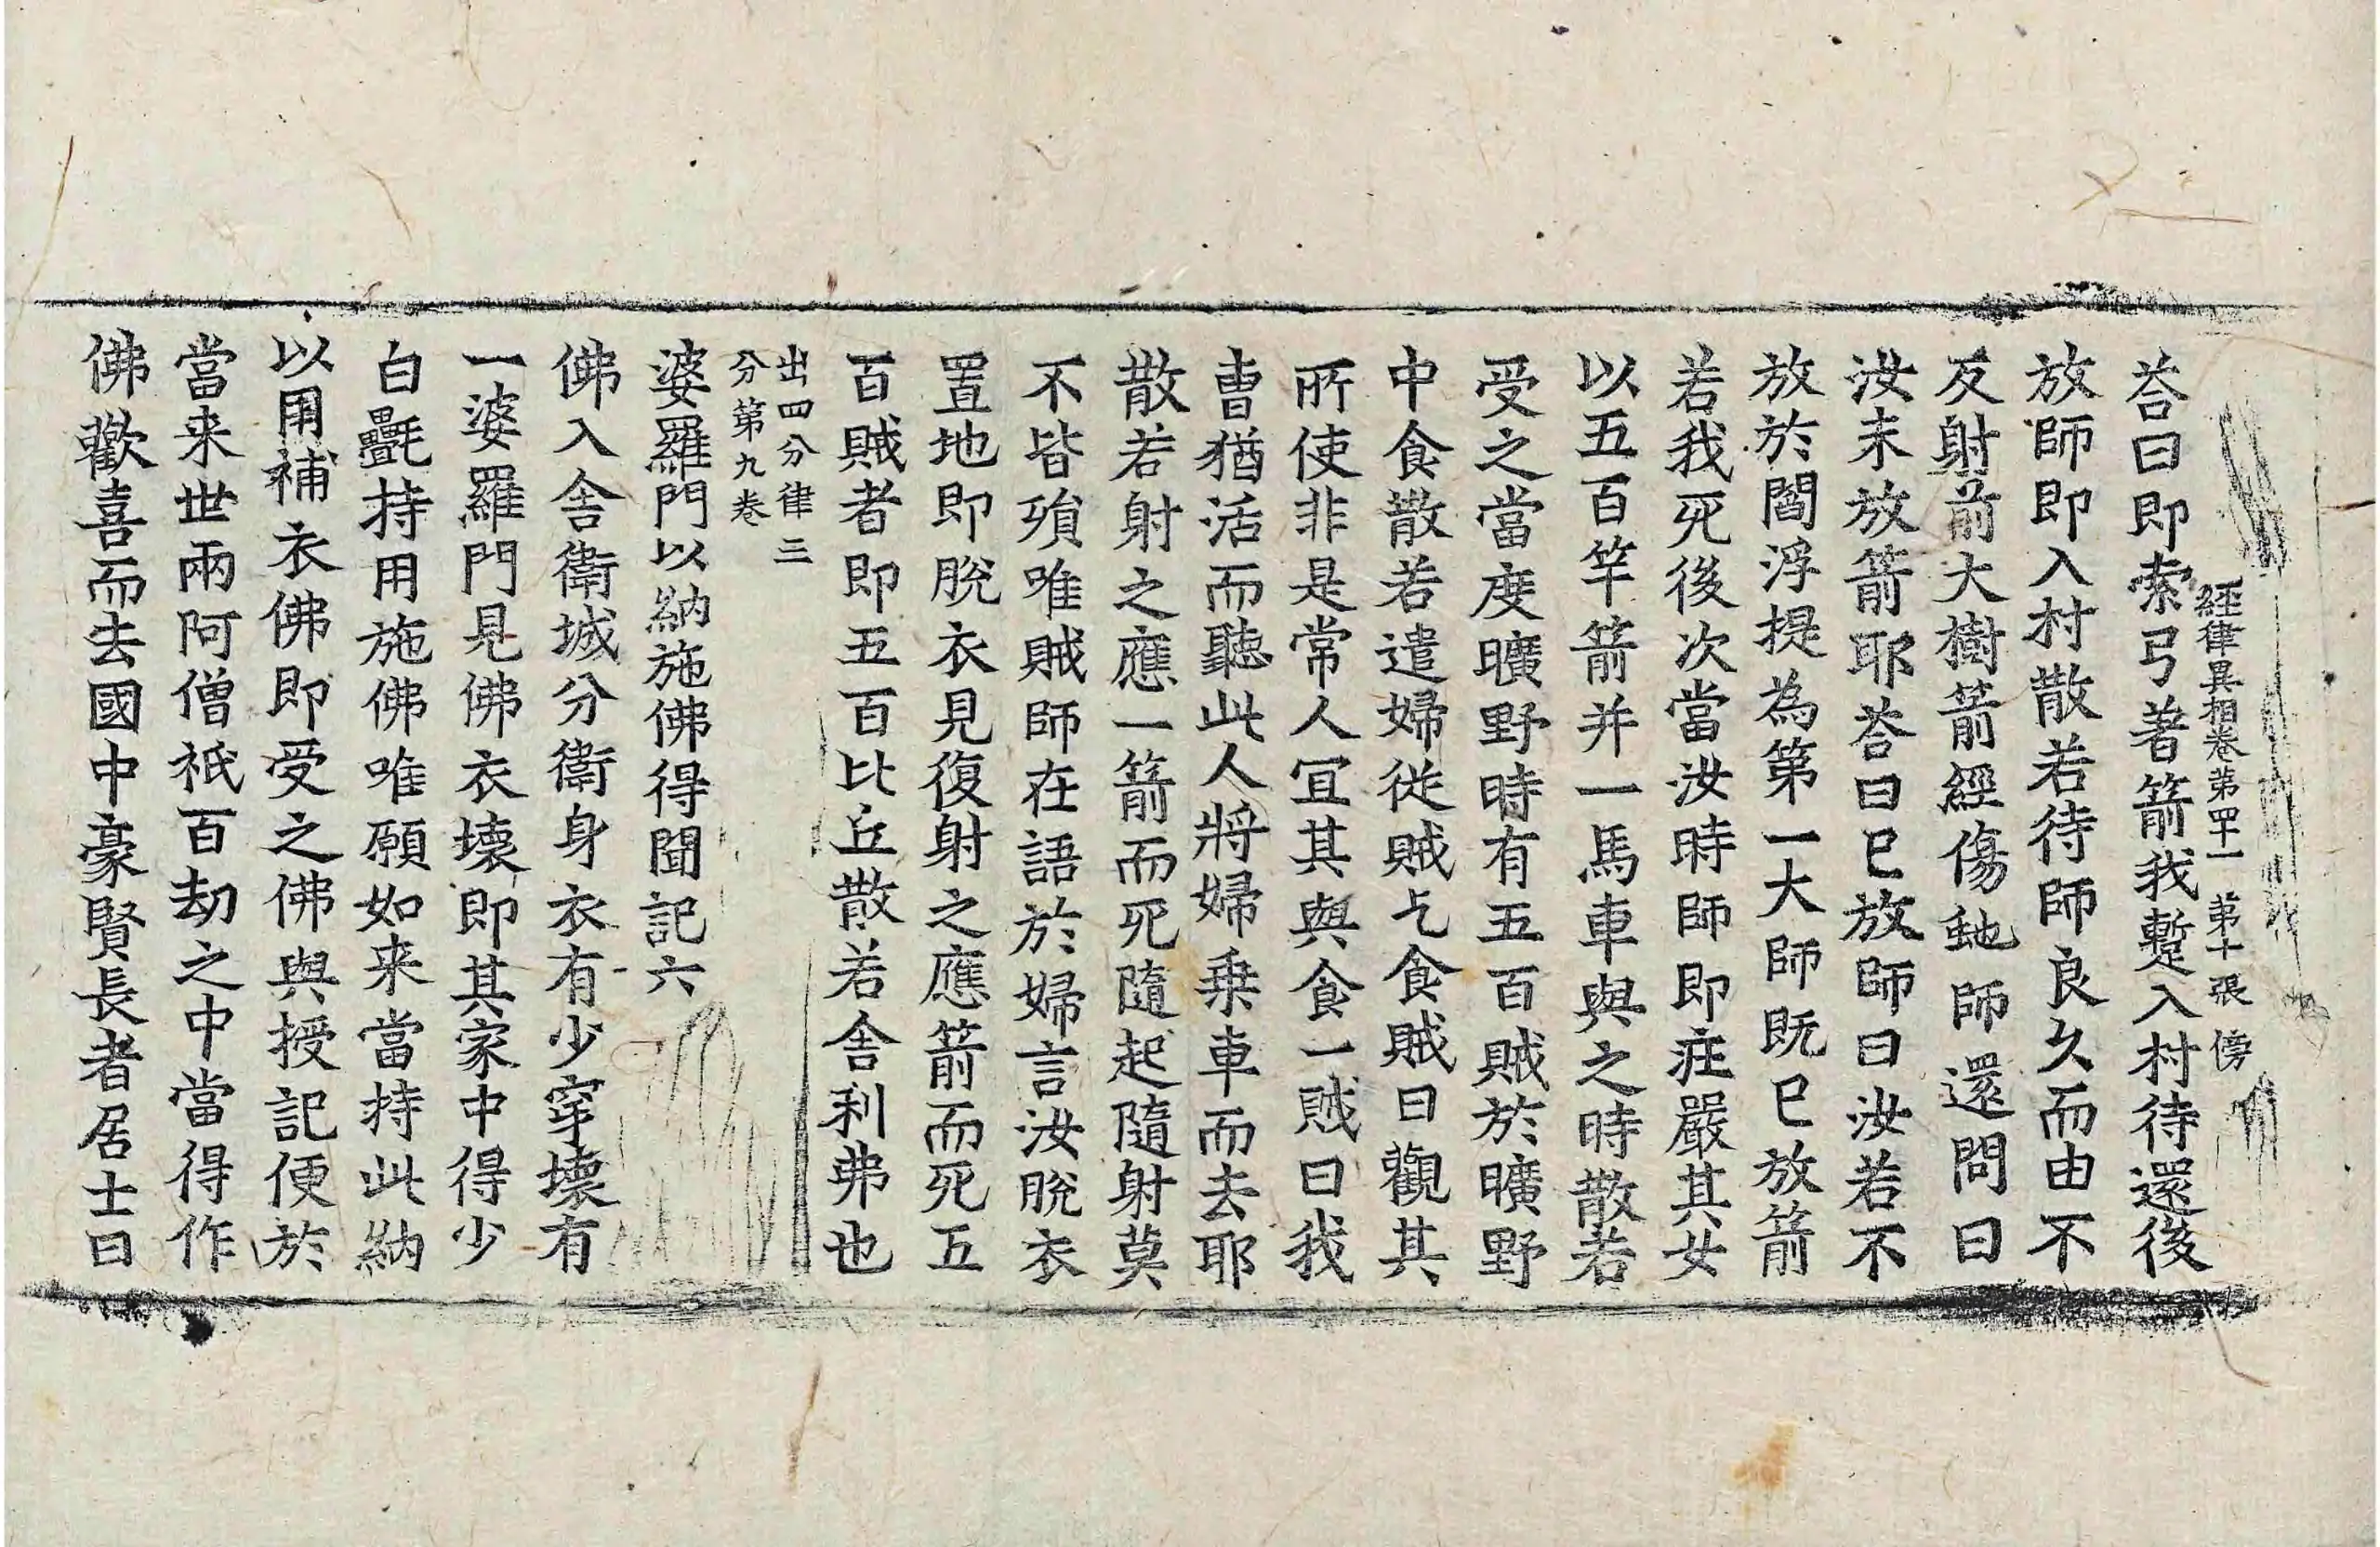 經律異相卷第四十一 第十張 傍
荅曰即索弓著箭我蹔入村待還後
放師即入村散若待師良久而由不
反射前大樹箭經傷虵師還問曰
汝未放箭耶荅曰已放師曰汝若不
放於閻浮提為第一大師既已放箭
若我死後次當汝時師即莊嚴其女
以五百竿箭并一馬車與之時散若
受之當度曠野時有五百賊於曠野
中食散若遣婦從賊乞食賊曰觀其
所使非是常人宜其與食一賊曰我
曺猶活而聽此人將婦乗車而去耶
散若射之應一箭而死隨起隨射莫
不皆殞唯賊師在語於婦言汝脫衣
置地即脫衣見復射之應箭而死五
百賊者即五百比丘散若舍利弗也
出四分律三
分第九卷
婆羅門以納施佛得聞記六
佛入舍衛城分衛身衣有少穿壞有
一婆羅門見佛衣壞即其家中得少
白㲲持用施佛唯願如来當持此納
以用補衣佛即受之佛與授記便於
當来世兩阿僧祇百劫之中當得作
佛歡喜而去國中豪賢長者居士曰